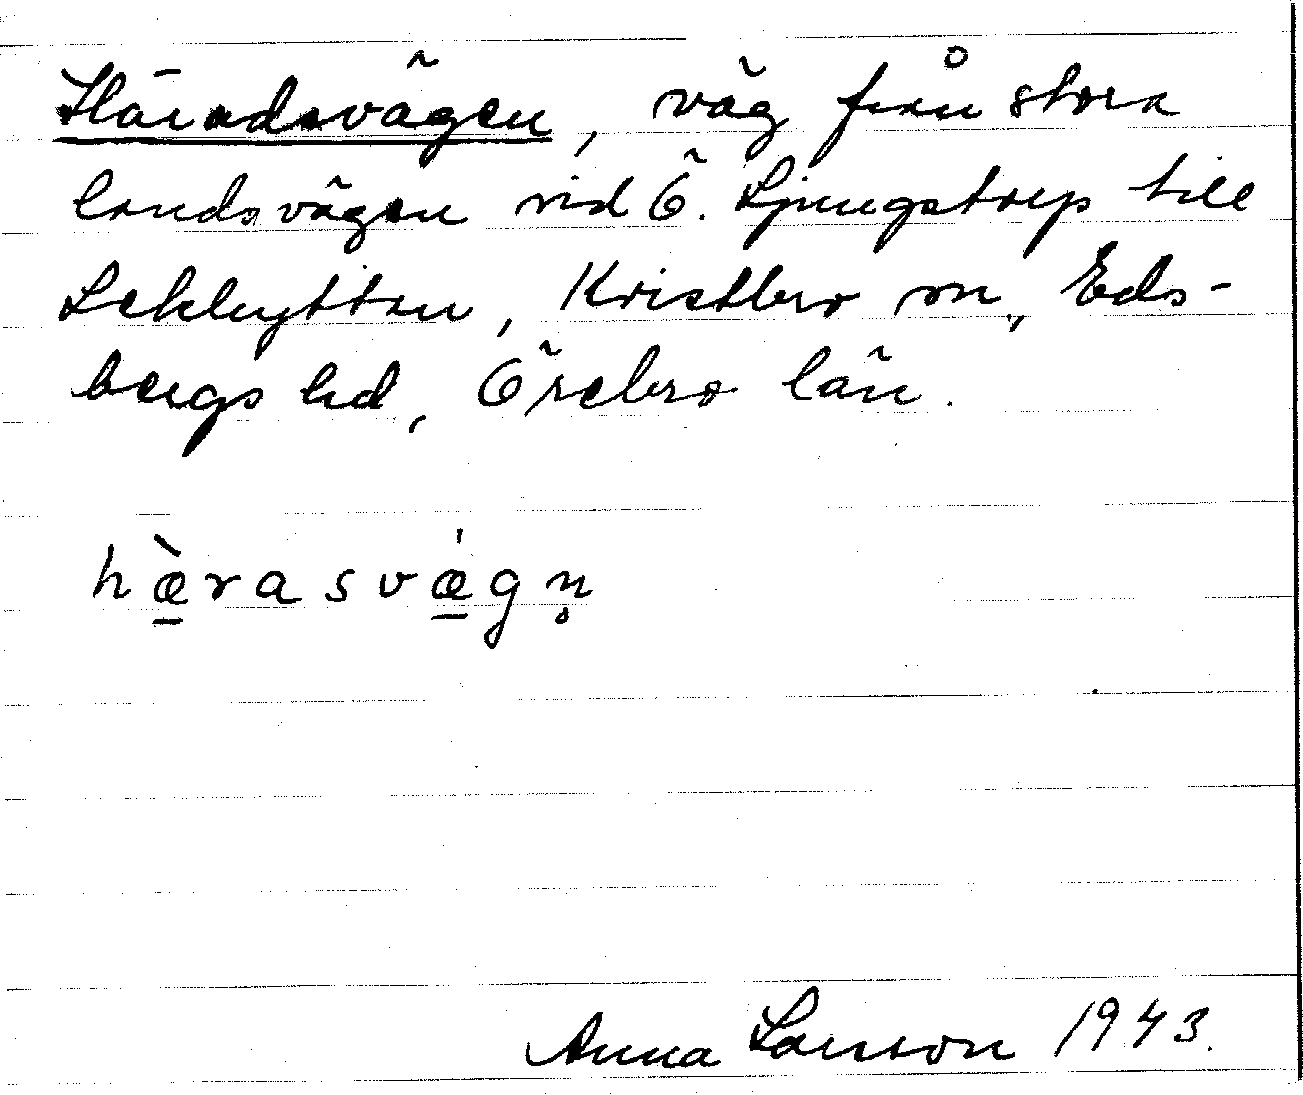 Häradsvägen, väg från stora
landsvägen vid Ö. Ljungstorp till
Lekhyttan, Kvistbro sn, Eds-
bergs hd, Örebro län.
hæ̠̀rasvǽ̠gn̥
Anna Larsson 1943.